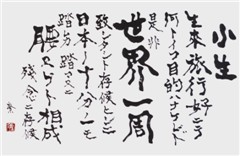 小生
生来旅行好ニテ
何トイフ目的ハナケレド
是非
世界一周
致シタシト存候ヒシニ
日本ノ十分ノ一モ
踏ミ踏マヌニ
腰ヌケト相成
残念ニ存候